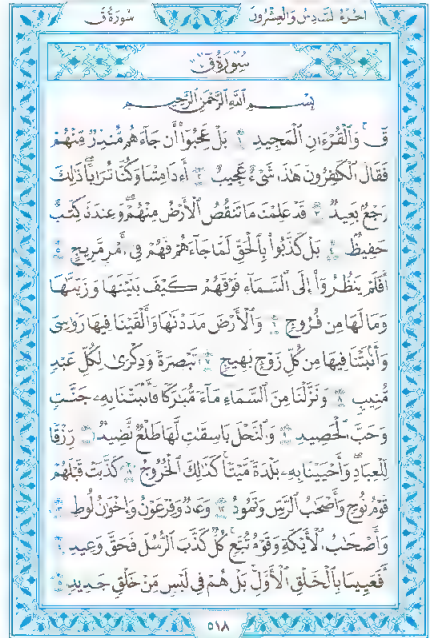 سُورَةُ قٓ الجزءُ السَّادِسُ وَالعِشْرُونَ
سُورَةُ قٓ
بِسْمِ ٱللَّهِ ٱلرَّحْمَٰنِ ٱلرَّحِيمِ
قٓ ۚ وَٱلْقُرْءَانِ ٱلْمَجِيدِ ١ بَلْ عَجِبُوٓا۟ أَن جَآءَهُم مُّنذِرٌ مِّنْهُمْ
فَقَالَ ٱلْكَٰفِرُونَ هَٰذَا شَىْءٌ عَجِيبٌ ٢ أَءِذَا مِتْنَا وَكُنَّا تُرَابًا ۖ ذَٰلِكَ
رَجْعٌۢ بَعِيدٌ ٣ قَدْ عَلِمْنَا مَا تَنقُصُ ٱلْأَرْضُ مِنْهُمْ ۖ وَعِندَنَا كِتَٰبٌ
حَفِيظٌۢ ٤ بَلْ كَذَّبُوا۟ بِٱلْحَقِّ لَمَّا جَآءَهُمْ فَهُمْ فِىٓ أَمْرٍ مَّرِيجٍ ٥
أَفَلَمْ يَنظُرُوٓا۟ إِلَى ٱلسَّمَآءِ فَوْقَهُمْ كَيْفَ بَنَيْنَٰهَا وَزَيَّنَّٰهَا
وَمَا لَهَا مِن فُرُوجٍ ٦ وَٱلْأَرْضَ مَدَدْنَٰهَا وَأَلْقَيْنَا فِيهَا رَوَٰسِىَ
وَأَنۢبَتْنَا فِيهَا مِن كُلِّ زَوْجٍۭ بَهِيجٍ ٧ تَبْصِرَةً وَذِكْرَىٰ لِكُلِّ عَبْدٍ
مُّنِيبٍ ٨ وَنَزَّلْنَا مِنَ ٱلسَّمَآءِ مَآءً مُّبَٰرَكًا فَأَنۢبَتْنَا بِهِۦ جَنَّٰتٍ
وَحَبَّ ٱلْحَصِيدِ ٩ وَٱلنَّخْلَ بَاسِقَٰتٍ لَّهَا طَلْعٌ نَّضِيدٌ ١٠ رِّزْقًا
لِّلْعِبَادِ ۖ وَأَحْيَيْنَا بِهِۦ بَلْدَةً مَّيْتًا ۚ كَذَٰلِكَ ٱلْخُرُوجُ ١١ كَذَّبَتْ قَبْلَهُمْ
قَوْمُ نُوحٍ وَأَصْحَٰبُ ٱلرَّسِّ وَثَمُودُ ١٢ وَعَادٌ وَفِرْعَوْنُ وَإِخْوَٰنُ لُوطٍ ١٣
وَأَصْحَٰبُ ٱلْأَيْكَةِ وَقَوْمُ تُبَّعٍ ۚ كُلٌّ كَذَّبَ ٱلرُّسُلَ فَحَقَّ وَعِيدِ ١٤
أَفَعَيِينَا بِٱلْخَلْقِ ٱلْأَوَّلِ ۚ بَلْ هُمْ فِى لَبْسٍ مِّنْ خَلْقٍ جَدِيدٍ ١٥
٥١٨